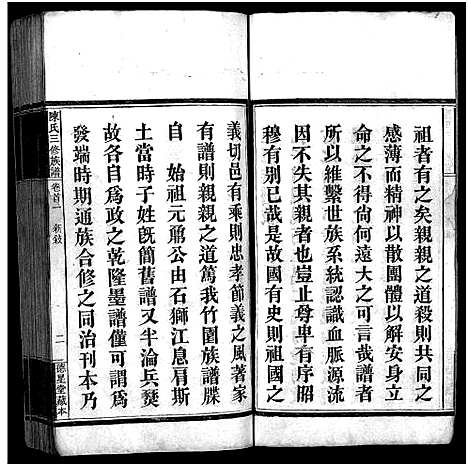 祖者有之矣親親之道殺則共同之
感薄而精神以散團體以解安身立
命之不得尚何遠大之可言哉譜者
所以維繫世族系統認識血脈源流
因不失其親者也豈止尊卑有序昭
穆有別已哉是故國有史則祖國之
義切邑有乘則忠孝節義之風著家
有譜則親親之道篤我竹園族譜牒
自　始祖元鼐公由石獅江息肩斯
土當時子姓旣簡舊譜又半淪兵燹
故各自爲政之乾隆墨譜僅可謂爲
發端時期通族合修之同治刊本乃
陳氏三修族譜
卷首
新敘
二
德星堂藏本